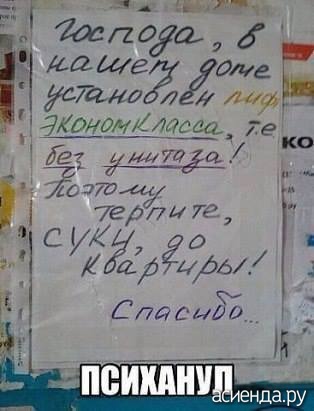 Господа, в
нашем доме
установлен лифт
ЭКОНОМКЛАССА, т.е.
без унитаза!
Поэтому
терпите,
суки, до
квартиры!
Спасибо...
КО
ПСИХАНУЛ
асиенда.ру